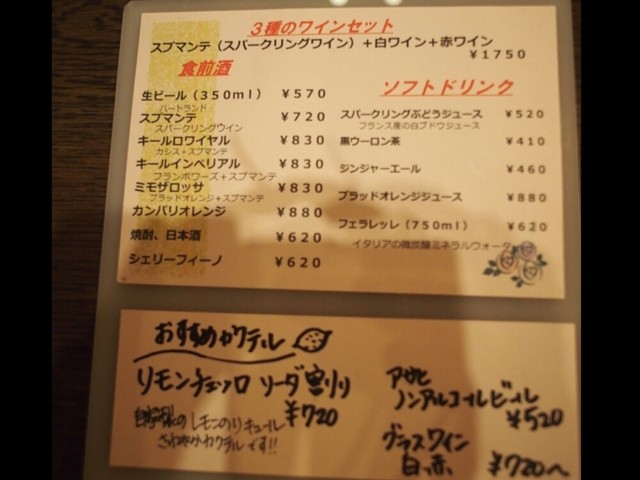 ３種のワインセット
スプマンテ（スパークリングワイン）＋白ワイン＋赤ワイン
￥１７５０
食前酒
生ビール（３５０ｍｌ） ￥５７０
ハートランド
スプマンテ ￥７２０
スパークリングウイン
キールロワイヤル ￥８３０
カシス＋スプマンテ
キールインペリアル ￥８３０
フランボワーズ＋スプマンテ
ミモザロッサ ￥８３０
ブラッドオレンジ＋スプマンテ
カンパリオレンジ ￥８８０
焼酎、日本酒 ￥６２０
シェリーフィーノ ￥６２０
ソフトドリンク
スパークリングぶどうジュース ￥５２０
フランス産の白ブドウジュース
黒ウーロン茶 ￥４１０
ジンジャーエール ￥４６０
ブラッドオレンジジュース ￥８８０
フェラレッレ（７５０ｍｌ） ￥６２０
イタリアの微炭酸ミネラルウォーター
おすすめカクテル
リモンチェッロ ソーダ割り
¥720
自家製のレモンのリキュール
さわやかカクテルです!!
アサヒ
ノンアルコールビール
¥520
グラスワイン
白,赤 ¥720へ